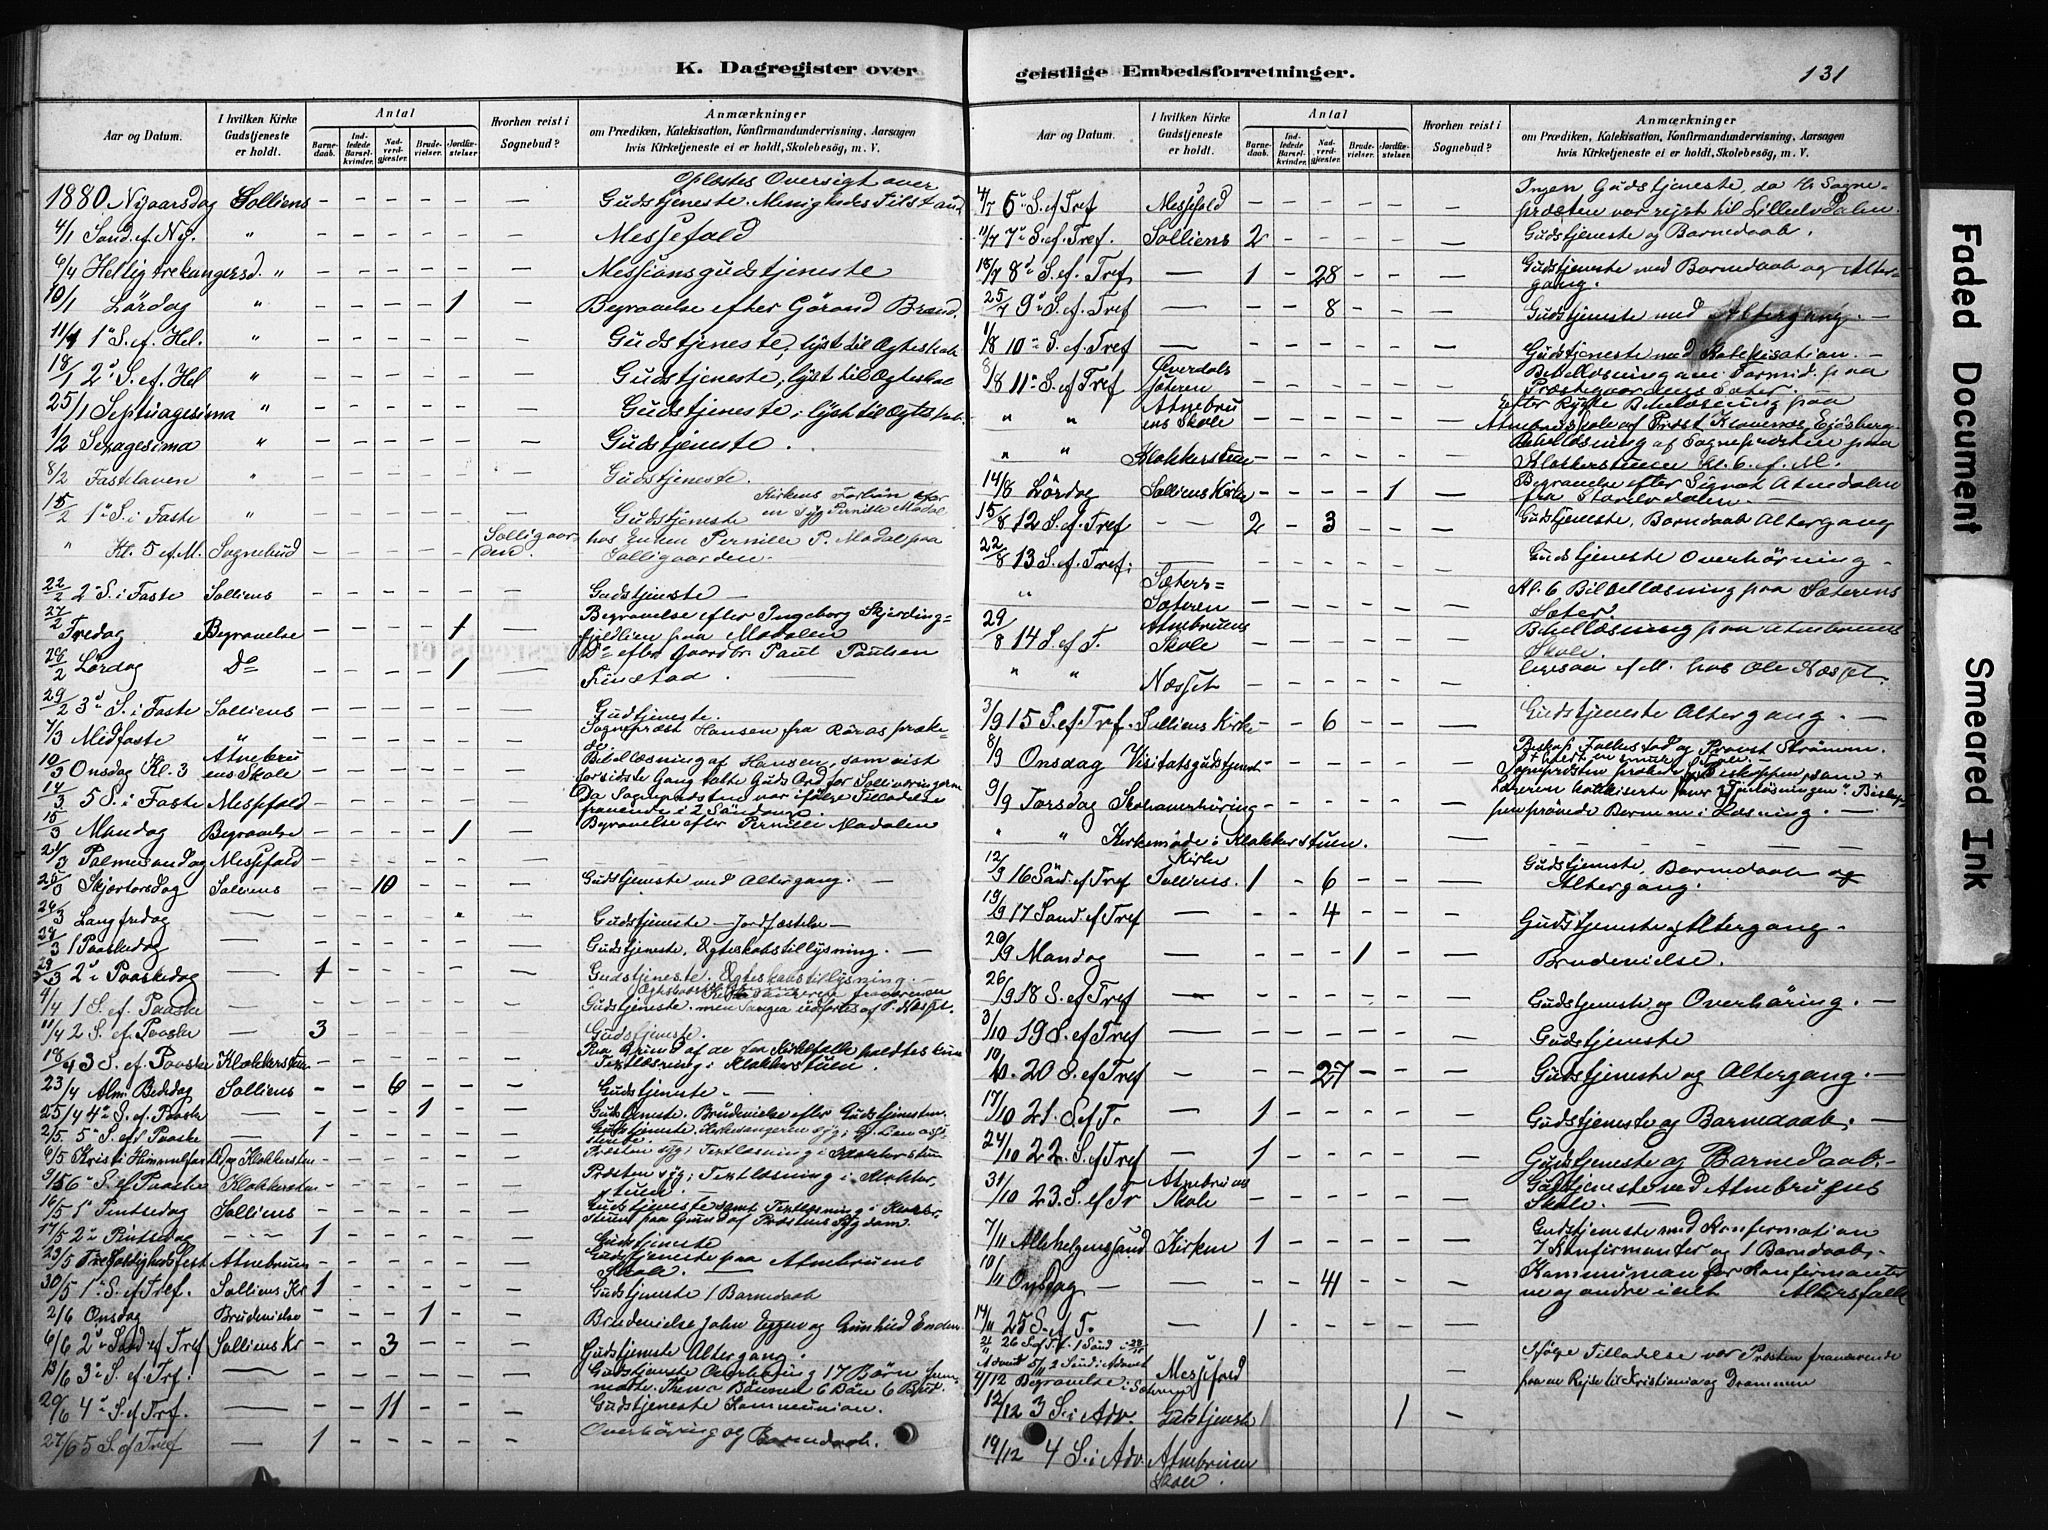 K. Dagregister over
Aar og Datum.
I hvilken Kirke Gudstjeneste er holdt.
Antal
Barnedaab.
Indledede Barselkvinder.
Nadverdgjester.
Brudevielser.
Jordfæstelser
Hvorhen reist i Sognebud?
Anmærkninger
om Prædiken, Katekisation, Konfirmandundervisning, Aarsagen
hvis Kirketjeneste ei er holdt, Skolebesög, m. V.
Oplæstes Oversigt over
1880 Nyaarsdag Solliens – – – – – — Gudstjeneste. Menighedes Tilstand
4/1 Sönd. ef. Ny. " – – – – – — Messefald
6/1 Hellig trekongersd. " – – – – – — Messjonsgudstjeneste
10/1 Lördag " – – – – 1 — Begravelse efter Görand Brænd.
11/1 1ste S. ef. Hel. " – – – – – — Gudstjeneste, lyst til Ægteskab
18/1 2d S. ef. Hel " – – – – – — Gudstjeneste, lyst til Ægteskab
25/1 Septuagesima " – – – – – — Gudstjeneste, lyst til Ægteskab.
1/2 Sexagesima " – – – – – — Gudstjeneste.
8/2 Fastelaven " – – – – – — Gudstjeneste.
Kirkens Forbön for
15/2 1ste S. i Faste " – – – – – — Gudstjeneste en syg Pernille Madal
" Kl. 5 ef. M. Sognebud – – – – – Solligaarden hos Enken Pernille P. Madal paa
Solligaarden.
22/2 2 S. i Faste Solliens – – – – – — Gudstjeneste —
27/2 Fredag Begravelse – – – – 1 — Begravelse efter Ingeborg Skjerding-
fjedlien paa Madalen
28/2 Lördag Do – – – – 1 — Do efter Gaardbr. Paul Paulsen
Finstad.
29/2 3d S. i Faste Solliens – – – – – — Gudtjeneste.
7/3 Midfaste " – – – – – — Sognepræst Hansen fra Röras prækede.
10/3 Onsdag Kl. 3 Atnebruens Skole – – – – – — Bibellæsning af Hansen, som vist
for sidste Gang talte Guds Ord for Solliværingerne
14/3 5 S. i Faste Messefald – – – – – — Da Sognepræsten var ifölge Tilladelse
fraværende i 2 Söndage.
15/3 Mandag Begravelse – – – – 1 — Begravelse efter Pernille Madalen
21/3 Palmesondag Messefald – – – – – —
25/3 Skjærtorsdag Solliens – – 10 – – — Gudstjeneste med Altergang. —
26/3 Langfredag — – – – – – — Gudstjeneste – Jordfæstelse —
28/3 1 Paaskedag — – – – – – — Gudstjeneste, Ægteskabstillysning. —
29/3 2d Paaskedag — 1 – – – – — Gudstjeneste. Ægteskabstillysning. —
4/4 1 S. ef. Paaske — – – – – – — Gudstjeneste. men Sangen udförtes af P. Næset.
11/4 2 S. ef. Paaske — 3 – – – – — Gudstjeneste.
18/4 3 S. ef. Paaske Klokkerstuen – – – – – — Paa Grund af de faa Kirkefolk holdtes kun
Textlæsning i Klokkerstuen.
23/4 Alm. Bededag Solliens – – 6 – – — Gudstjeneste —
25/4 4de S. ef. Paaske — – – – 1 – — Gudstjeneste. Brudevielse efter Gudstjenesten
2/5 5te S. ef. Paaske — 1 – – – – — Gudstjeneste. Kirkesangeren syg;
6/5 Kristi Himmelfartsdag Klokkerstuen – – – – – — Præsten syg; Textlæsning i Klokkerstuen
9/5 6te S. ef Paaske Klokkerstuen – – – – – — Præsten syg; Textlæsning i Klokker-
stuen.
16/5 1ste Pintsedag Solliens – – – – – — Gudstjeneste samt Textlæsning i Klokker-
stuen paa Grund af Præstens Sygdom.
17/5 2d Pintsedag — 1 – – – – — Gudstjeneste
23/5 Trefoldighedsfest Atnebruens – – – – – — Gudstjeneste paa Atnebruens
Skole. —
30/5 1ste S. ef Tref. Solliens Kr 1 – – – – — Gudstjeneste 1 Barnedaab
2/6 Onsdag Brudevielse – – – 1 – — Brudevielse John Eggen og Gunhild Enden
6/6 2d Sönd ef Tref Solliens Kr – – 3 – – — Gudstjeneste Altergang.
13/6 3die S. ef. Trf. — – – – – – — Gudstjeneste Overhöring 17 Börn frem-
mötte. 6 Börn
20/6 4de S. ef Trf. — – – 11 – – — Gudstjeneste Kommunion.
27/6 5 S. ef Tref — 1 – – – – — Overhöring og Barnedaab.
geistlige Embedsforretninger.
131
Aar og Datum.
I hvilken Kirke Gudstjeneste er holdt.
Antal
Barnedaab.
Indledede Barselkvinder.
Nadverdgjester.
Brudevielser.
Jordfæstelser
Hvorhen reist i Sognebud?
Anmærkninger
om Prædiken, Katekisation, Konfirmandundervisning, Aarsagen
hvis Kirketjeneste ei er holdt, Skolebesög, m. V.
4/7 6te S. ef Tref Messefald – – – – – — Ingen Gudstjeneste, da Hr Sogne-
præsten var rejst til Lilleelvdalen.
11/7 7de S. ef. Tref. Solliens 2 – – – – — Gudstjeneste og Barnedaab.
18/7 8d S. ef. Tref. — 1 – 28 – – — Gudstjeneste med Barnedaab og Alter-
gang.
25/7 9de S. ef. Tref — – – 8 – – — Gudstjeneste med Altergang. —
1/8 10de S. ef. Tref — – – – – – — Gudstjeneste med Katekisation. —
8/8 11te S. ef Tref Øverdals Sæteren – – – – – — Bibellæsning om Formid. paa
Præstegaardens Sæter —
" " Atnebruens Skole – – – – – — Efter Rygte Bibellæsning paa
Atnebruskole af Præst Klaveness, Ejdsberg
" " Klokkerstuen – – – – – — Bibellæsning af Sognepræsten paa
Klokkerstuen Kl. 6. ef. M.
14/8 Lördag Solliens Kirke – – – – 1 — Begravelse efter Signot Atnedalen
fra Storelvdalen —
15/8 12 S. ef Tref — 2 – 3 – – — Gudstjeneste, Barndaab Altergang
22/8 13 S. ef. Tref. — – – – – – — Gudstjeneste Overhörning —
" Sæters=Sæteren – – – – – — Kl. 6 Bibellæsning paa Sæterens
Sæter.
29/8 14 S. ef T. Atnebruens Skole – – – – – — Bibellæsning paa Atnebruens
Skole.
" " Næsset – – – – – — ligesaa ef M. hos Ole Næsset.
3/9 15 S. ef. Tref. Solliens Kirke – – 6 – – — Gudstjeneste Altergang. —
8/9 Onsdag Visitatsgudstjenest – – – – – — Biskop Folkestad og Provst Strömm.
9/9 Torsdag Skoleoverhöring – – – – – —
pen prövede Börnene i Læsning. —
" " Kirkemöde i Klokkerstuen. —
12/9 16 Sönd. ef Tref Solliens Kirke 1 – 6 – – — Gudstjeneste, Barnedaab og
Altergang.
19/9 17 Sönd. ef Tref — – – 4 – – — Gudstjeneste og Altergang.
20/9 Mandag — – – – 1 – — Brudevielse.
26/9 18 S. ef Tref — – – – – – — Gudstjeneste og Overhöring. —
3/10 19 S. ef Tref — – – – – – — Gudstjeneste
10/10. 20 S. ef Tref — – – 27 – – — Gudstjeneste og Altergang. —
17/10 21. S. ef T. — 1 – – – – — Gudstjeneste og Barnedaab. —
24/10 22. S. ef Tref — 1 – – – – — Gudstjeneste og Barnedaab. —
31/10 23. S. ef Tr Atnebruens Skole – – – – – — Gudstjeneste ved Atnebruens
Skole. —
7/11 Allehelgenssönd Kirken 1 – – – – — Gudstjeneste med Konfirmation
7 Konfirmanter og 1 Barndaab.
10/11 Onsdag — – – 41 – – — Kommunion for Konfirmanter
ne og andre i alt Altersfolk
14/11 25 S. ef T. 1 – – – – —
21/11 26 S. ef Tr. 1 Sönd i 28/11
Advent 5/12 2 Sönd i Advent Messefald Ifölge Tilladelse var Præsten fraværende
4/12 Begravelse i Sollien paa en Rejse til Kristiania og Drammen
12/12 3 S. i Adv. Gudstjeneste 1 1 —
19/12 4 S. i Adv. Atnebruen
Skole.
Faded Document
Smeared Ink